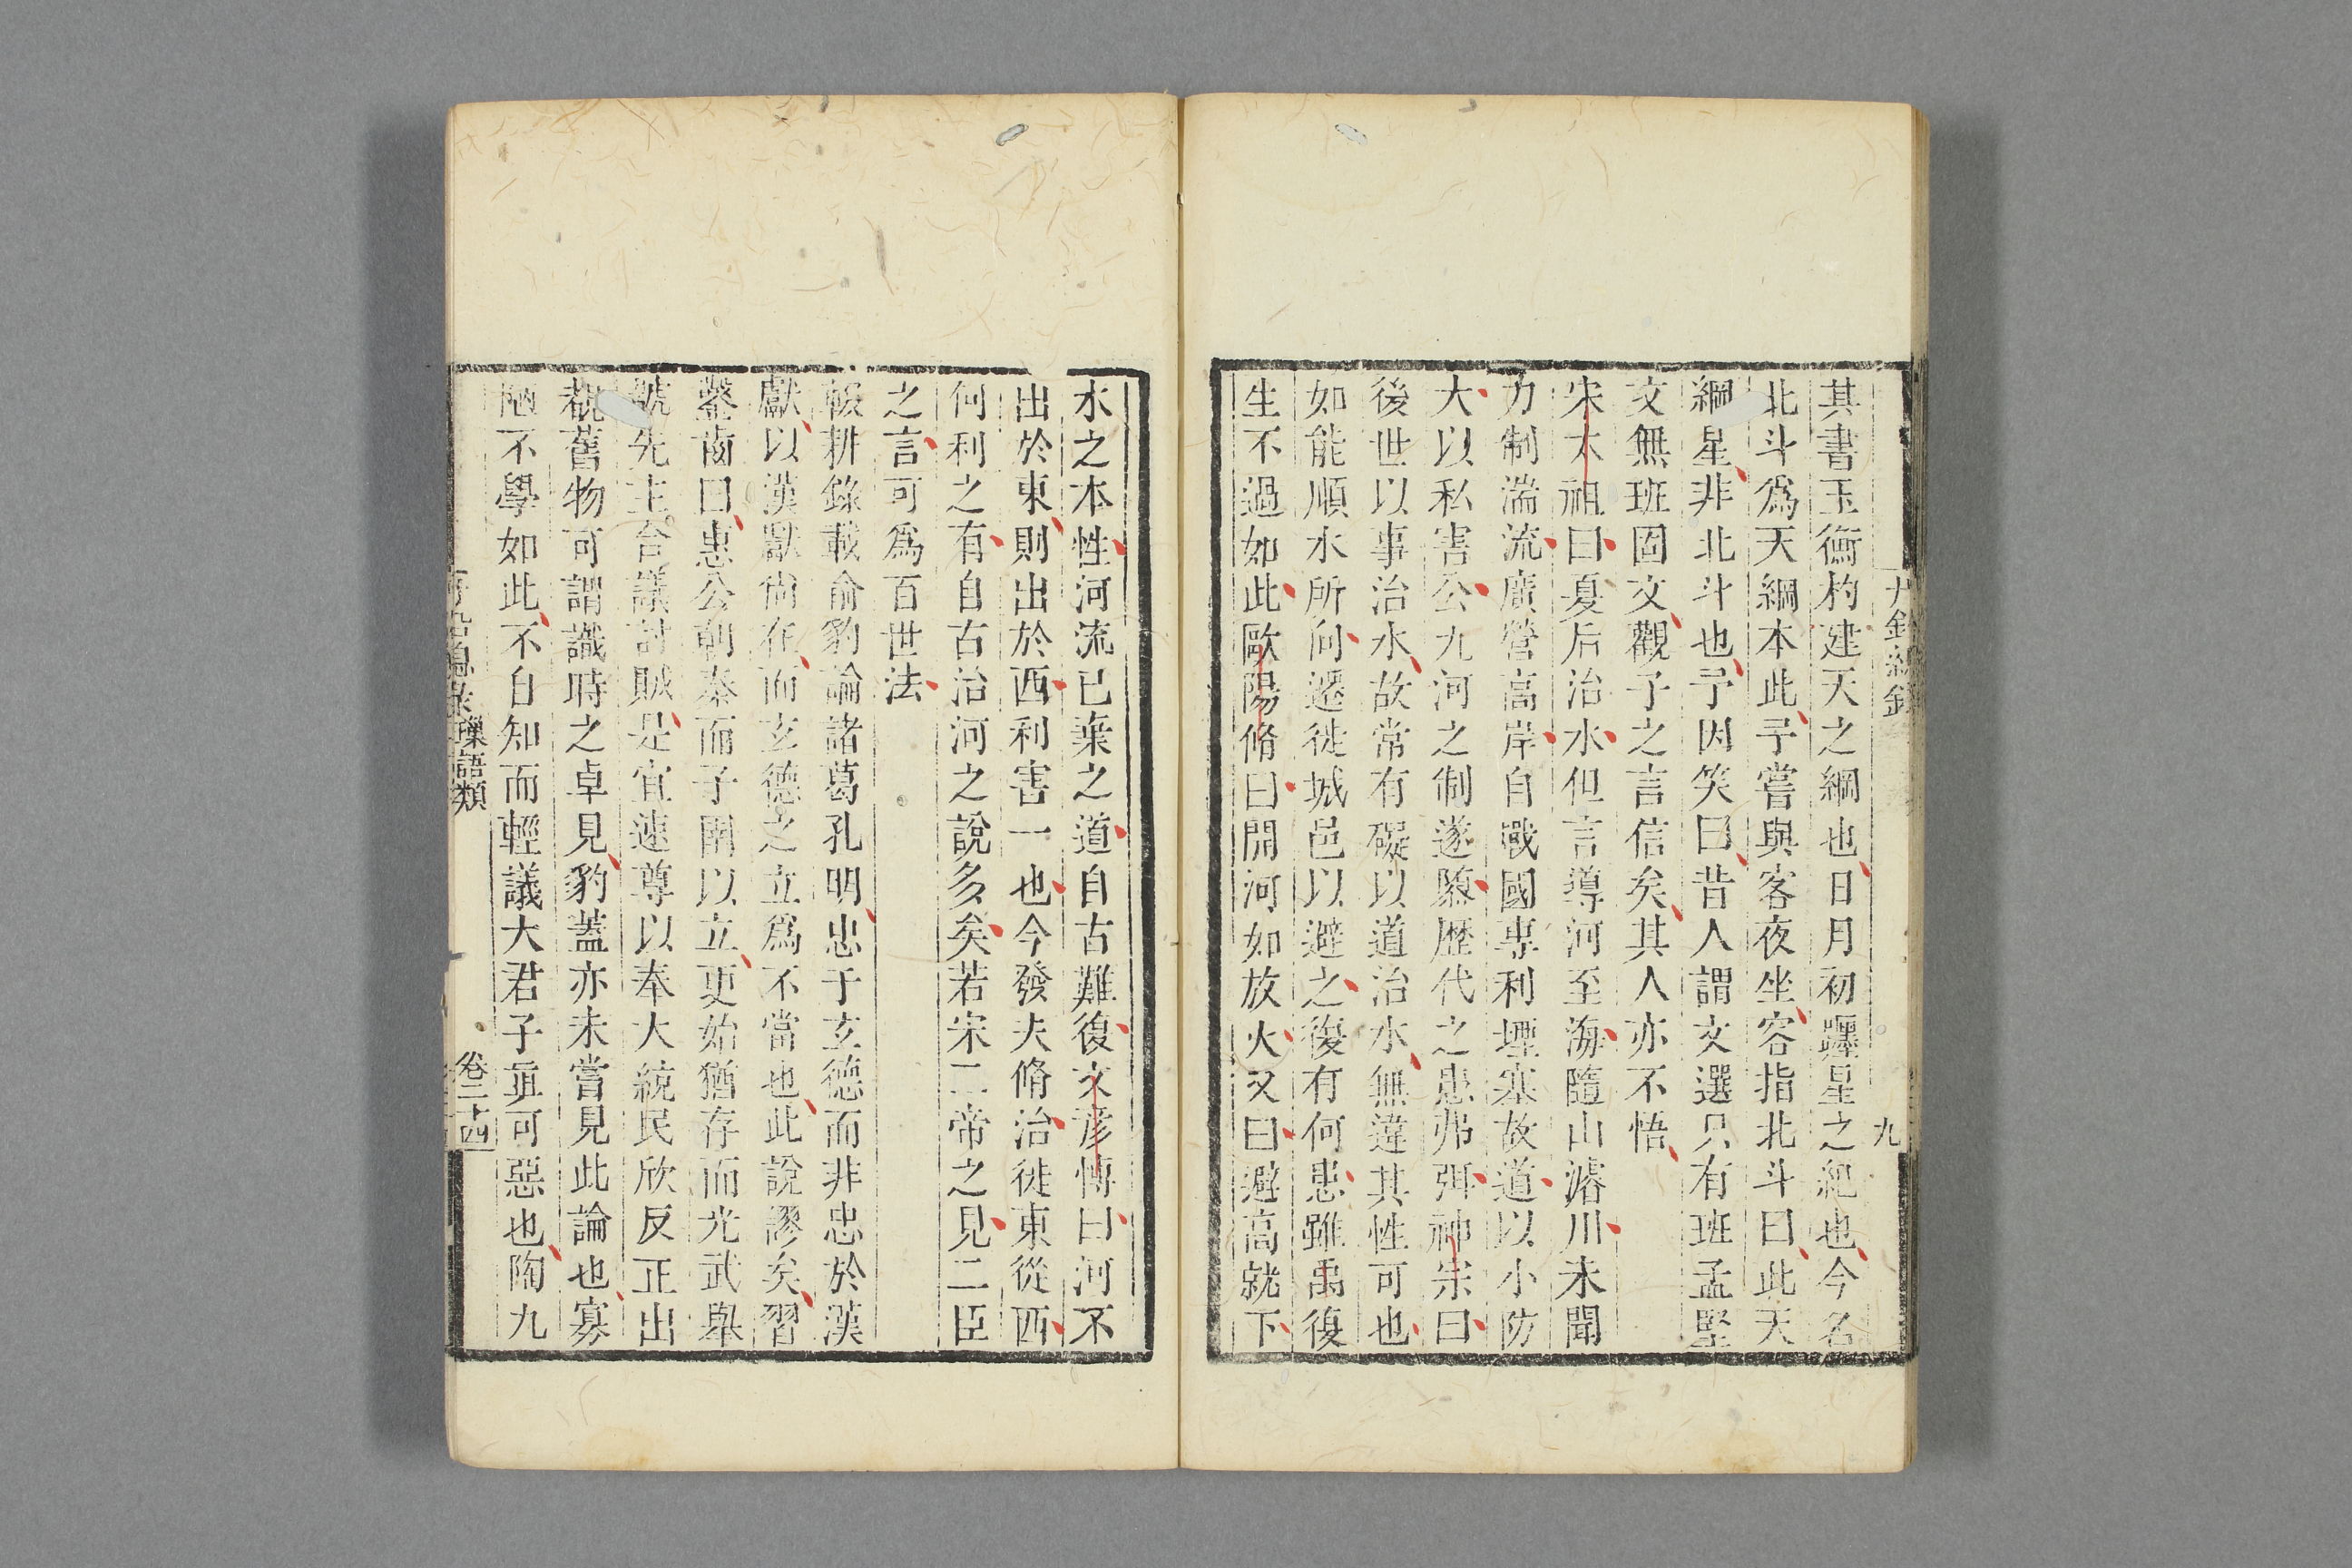 其書玉衡杓建天之綱也日月初躔星之紀也今名
北斗爲天綱本此予嘗與客夜坐客指北斗曰此天
綱星非北斗也予因笑曰昔人謂文選只有班孟堅
文無班固文觀子之言信矣其人亦不悟
宋太祖曰夏后治水但言導河至海隨山濬川未聞
力制湍流廣營高岸自戰國專利堙塞故道以小防
大以私害公九河之制遂隳歷代之患弗弭神宗曰
後世以事治水故常有礙以道治水無違其性可也
如能順水所向遷徙城邑以避之復有何患雖禹復
生不過如此歐陽脩曰開河如放火又曰避高就下
九
水之本性河流已棄之道自古難復文彦博曰河不
出於東則出於西利害一也今發夫脩治徙東從西
何利之有自古治河之說多矣若宋二帝之見二臣
之言可爲百世法
輟耕錄載俞豹論諸葛孔明忠于玄德而非忠於漢
獻以漢獻尚在而玄德之立爲不當也此說謬矣習
鑿齒曰惠公朝秦而子圉以立更始猶存而光武舉
號先主合議討賊是宜速尊以奉大統民欣反正出
覩舊物可謂識時之卓見豹蓋亦未嘗見此論也寡
陋不學如此不自知而輕議大君子眞可惡也陶九
璅語類
卷二十四